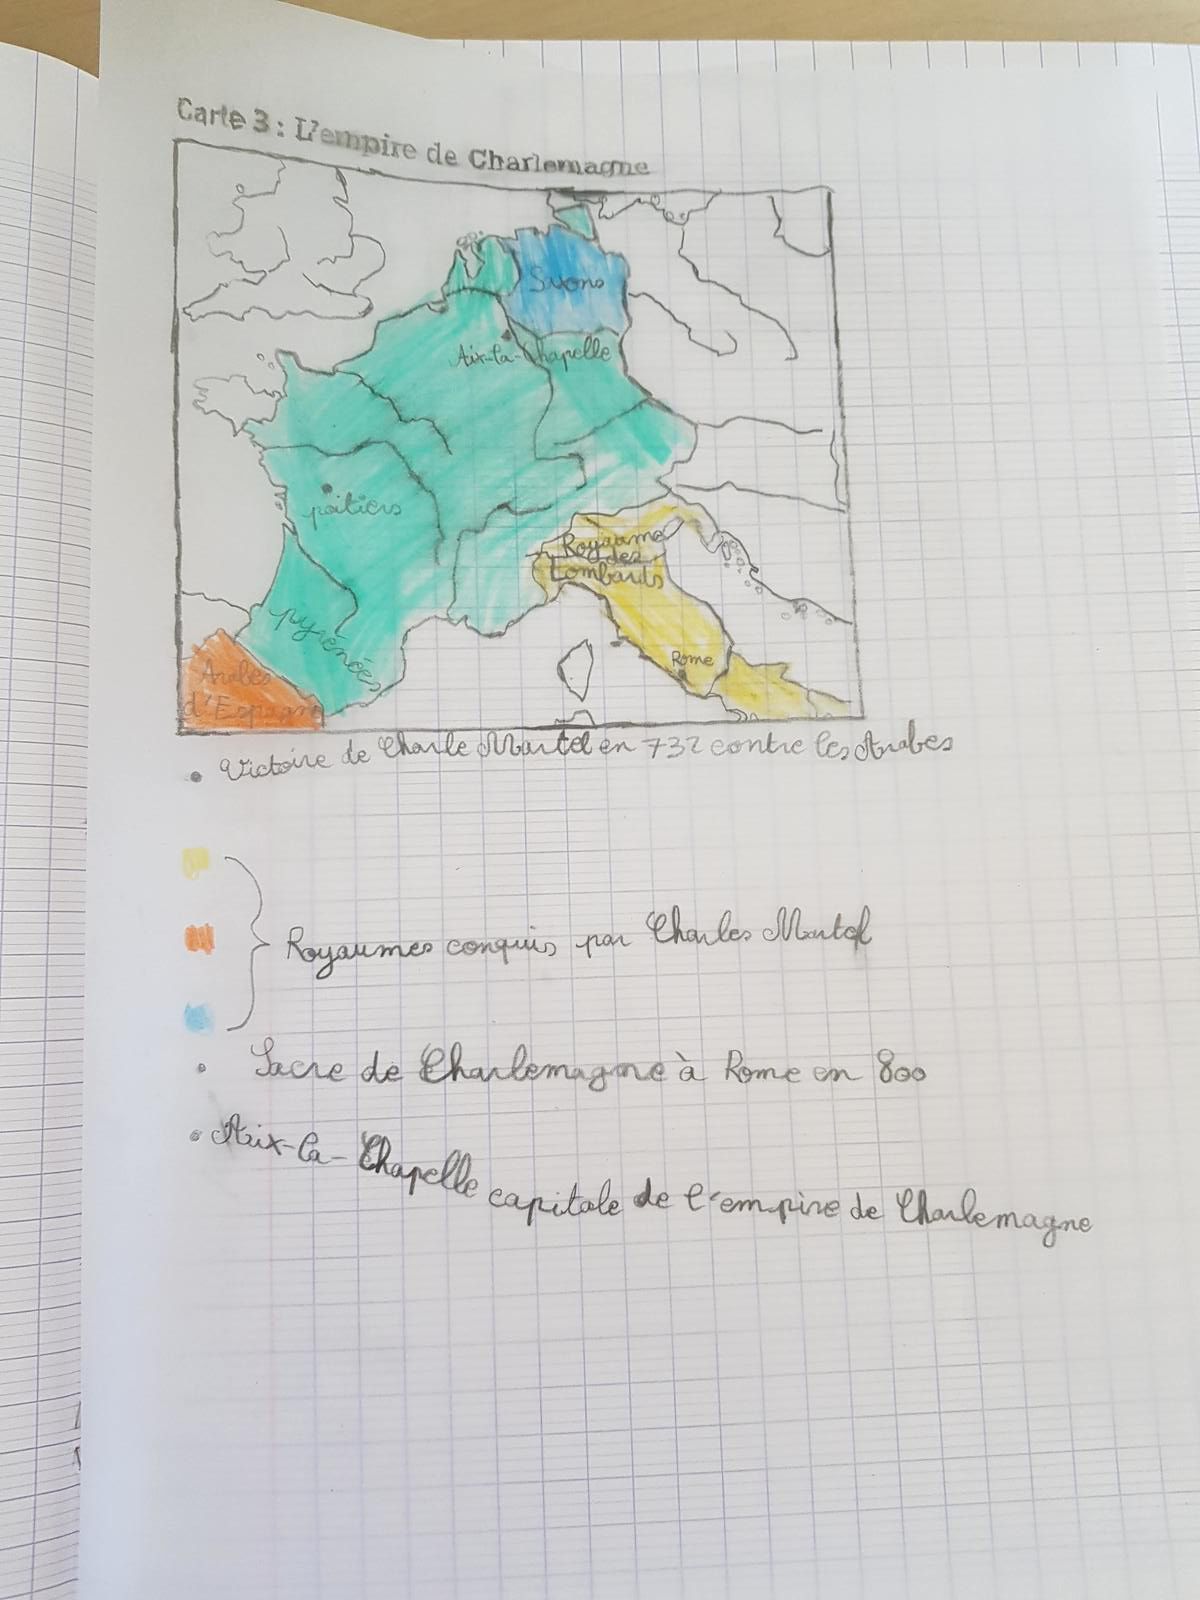 Carte 3 : L'empire de Charlemagne
Saxons
Aix-la-Chapelle
poitiers
Royaume
des
Lombards
pyrénées
Rome
Arabes
d'Espagne
• Victoire de Charle Martel en 732 contre les Arabes
Royaumes conquis par Charles Martel
• Sacre de Charlemagne à Rome en 800
• Aix-la-Chapelle capitale de l'empire de Charlemagne